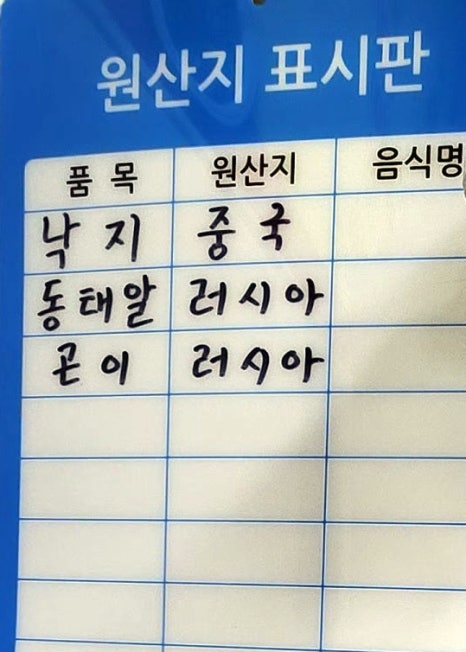 원산지 표시판
품 목 원산지 음식명
낙 지 중 국
동태알 러시아
곤 이 러시아